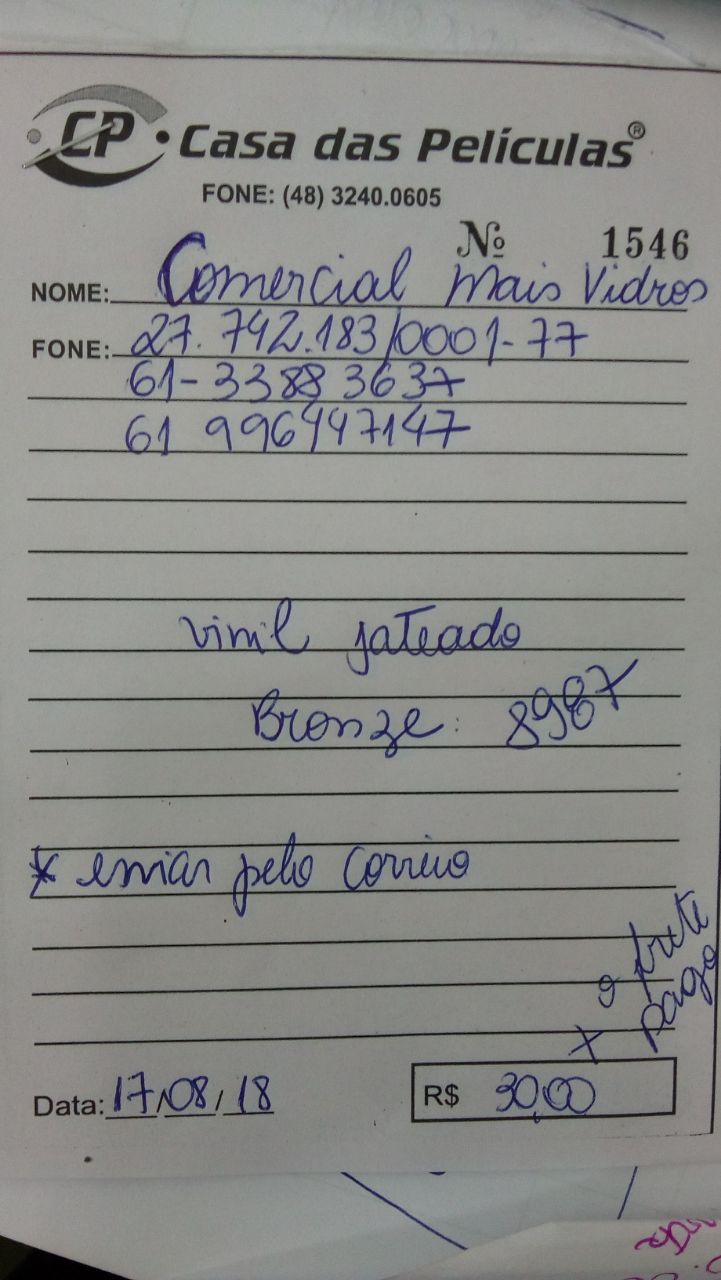 CP • Casa das Películas®
FONE: (48) 3240.0605
Nº 1546
NOME: Comercial Mais Vidros
FONE: 27.742.183/0001-77
61-3388 3637
61 996447147
vinil jateado
Bronze: 8987
* enviar pelo correio
+ o frete
pago
Data: 17/08/18
R$ 30,00